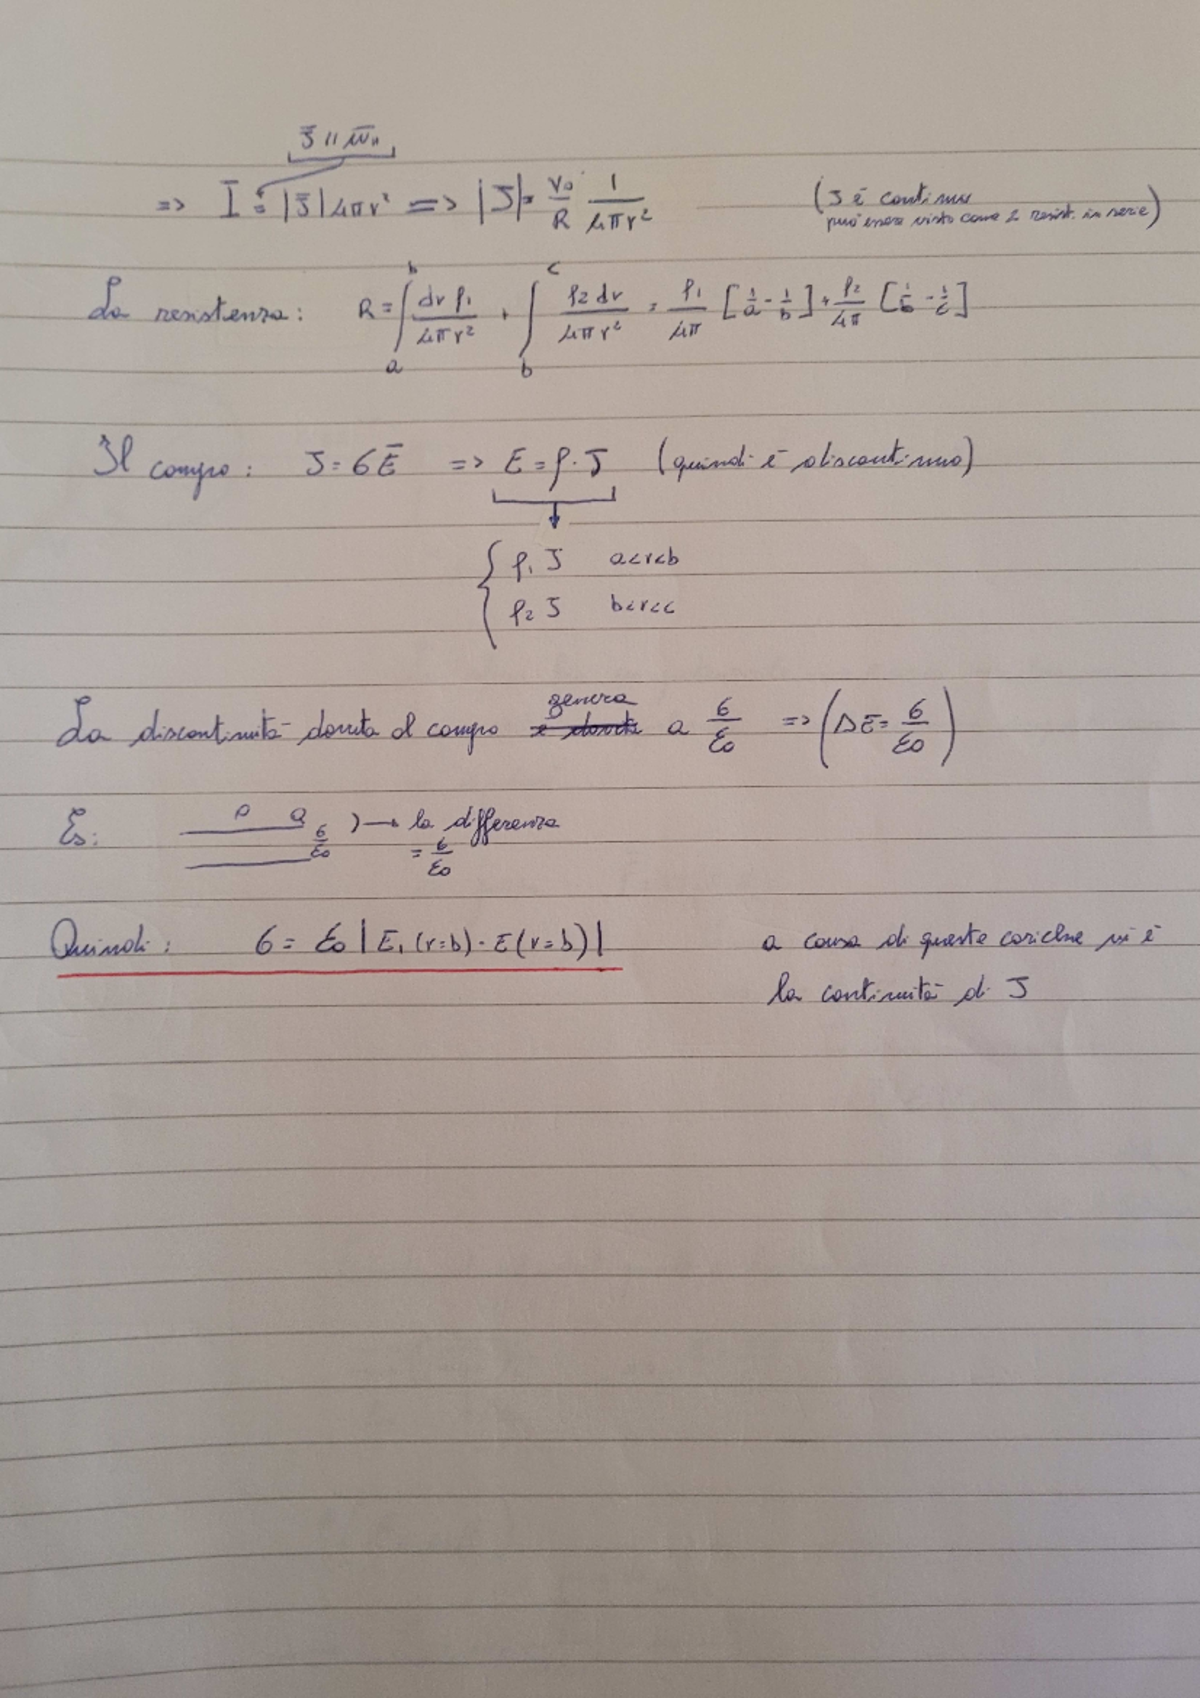 J̄ // ū_n
=> I = |J̄| 4πr² => |J| = V₀/R 1/4πr² (J è continua
può essere visto come 2 resist. in serie)
La resistenza: R = ∫_a^b dr ρ₁/4πr² + ∫_b^c ρ₂ dr/4πr² = ρ₁/4π [1/a - 1/b] + ρ₂/4π [1/b - 1/c]
Il campo: J = σĒ => E = ρ · J (quindi è discontinuo)
ρ₁ J a<r<b
ρ₂ J b<r<c
genera
La discontinuità dovuta al campo è dovuta a σ/ε₀ => (ΔE = σ/ε₀)
Es: σ/ε₀ ) → la differenza
= σ/ε₀
Quindi: σ = ε₀ |E₁(r=b) - E(r=b)| a causa di queste cariche vi è
la continuità di J